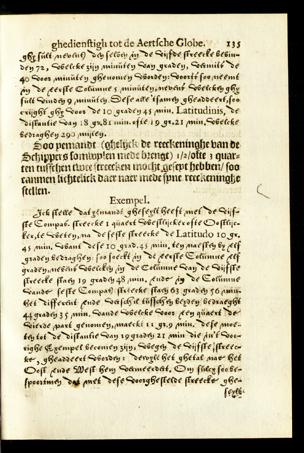 ghedienstigh tot de Aertsche Globe. 135
ghy sult nevens den selven in de vijfde streecke bevin-
den 72, welcke zijn minuten van graden, vermits de
40 voor minuten ghenomen worden: voorts soo neemt
in de eerste Columne 5 minuten, nevens welcken ghy
sult vinden 9 minuten. Dese alle t'samen gheaddeert, soo
krijght ghy voor de 10 graden 45 min. Latitudinis, de
distantie van 18 gr. 81 min. ofte 19 gr. 21 min. welcke
bedraghen 290 mijlen.
Soo yemandt (ghelijck de reeckeninghe van de
Schippers somwylen mede brengt) 1/2/ ofte 1 quar-
ten tusschen twee streecken mocht geseylt hebben/ soo
canmen lichtelick daer naer mede syne reeckeninghe
stellen.
Exempel.
Ick stelle dat yemandt gheseylt heeft met de vijf-
ste Compas streecke 1 quart Westlijcker ofte Oostlijc-
ker, te weten, na de seste streecke de Latitudo 10 gr.
45 min. want dese 10 grad. 45 min. ten naesten by elf
graden bedraghen: soo soeckt in de eerste Columne elf
graden, nevens welcken in de Columne van de vijfste
streecke staen 19 graden 48 min. ende in de Columne
vande seste Compas streecke staen 63 graden 56 min.
het different ende verschil tusschen beyden bedraeght
44 graden 35 min. vande welcke voor een quart de
vierde part genomen, maeckt 11 gr. 9 min. dese moe-
ten tot de distantie van 19 graden 21 min die in't voo-
righe Exempel becomen zijn, weghen de vijfste streec-
ke, gheaddeert worden: dewijl het ghetal naer het
Oost ende West hem vermeerdert. Om sulcx soo be-
spoortmen dat met dese voorghestelde streecke ghe-
seylt